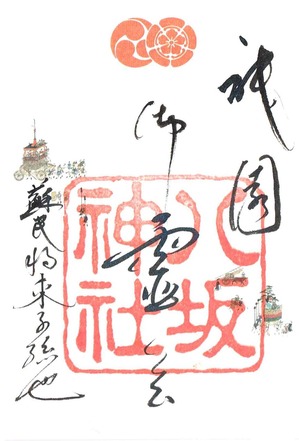 祇園
御霊会
蘇民将来子孫也
八坂神社